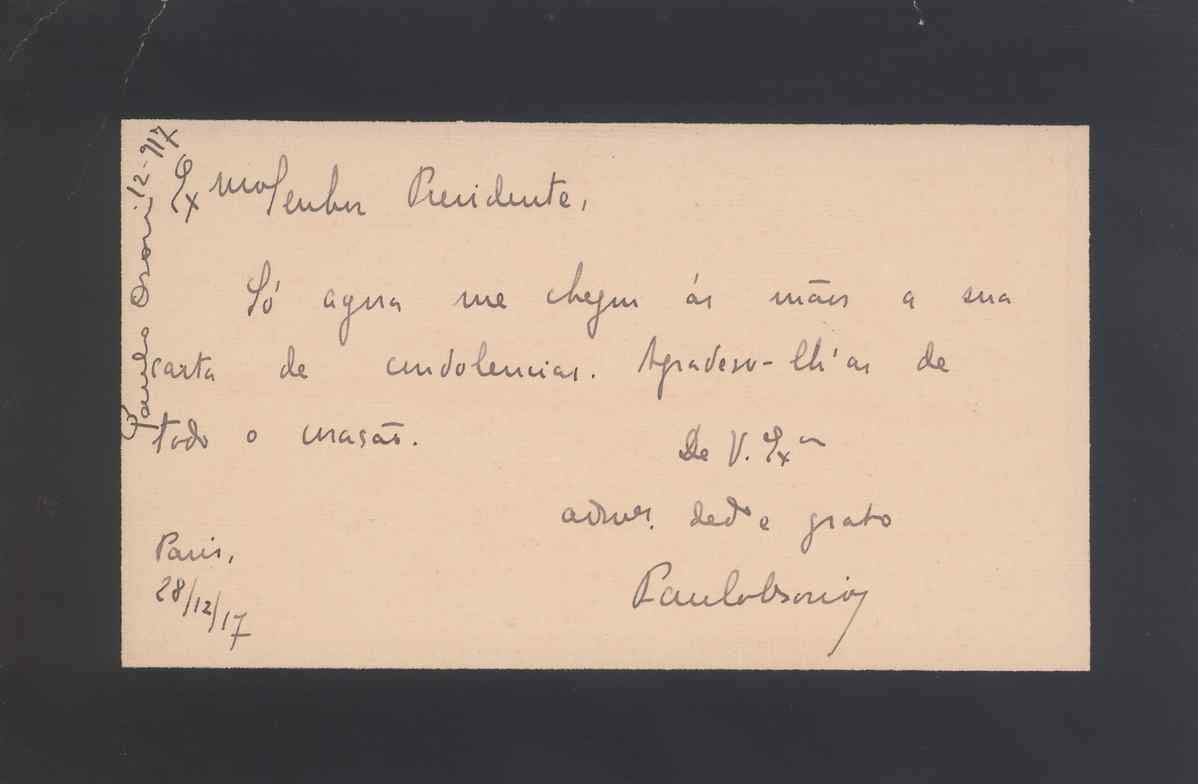 Paulo Osorio 12-917
Exmo Senhor Presidente,
Só agora me chegou ás mãos a sua
carta de condolencias. Agradeso-lh'as de
todo o corasão.
De V. Exa
admor. dedo e grato
Paulo Osorio
Paris,
28/12/17